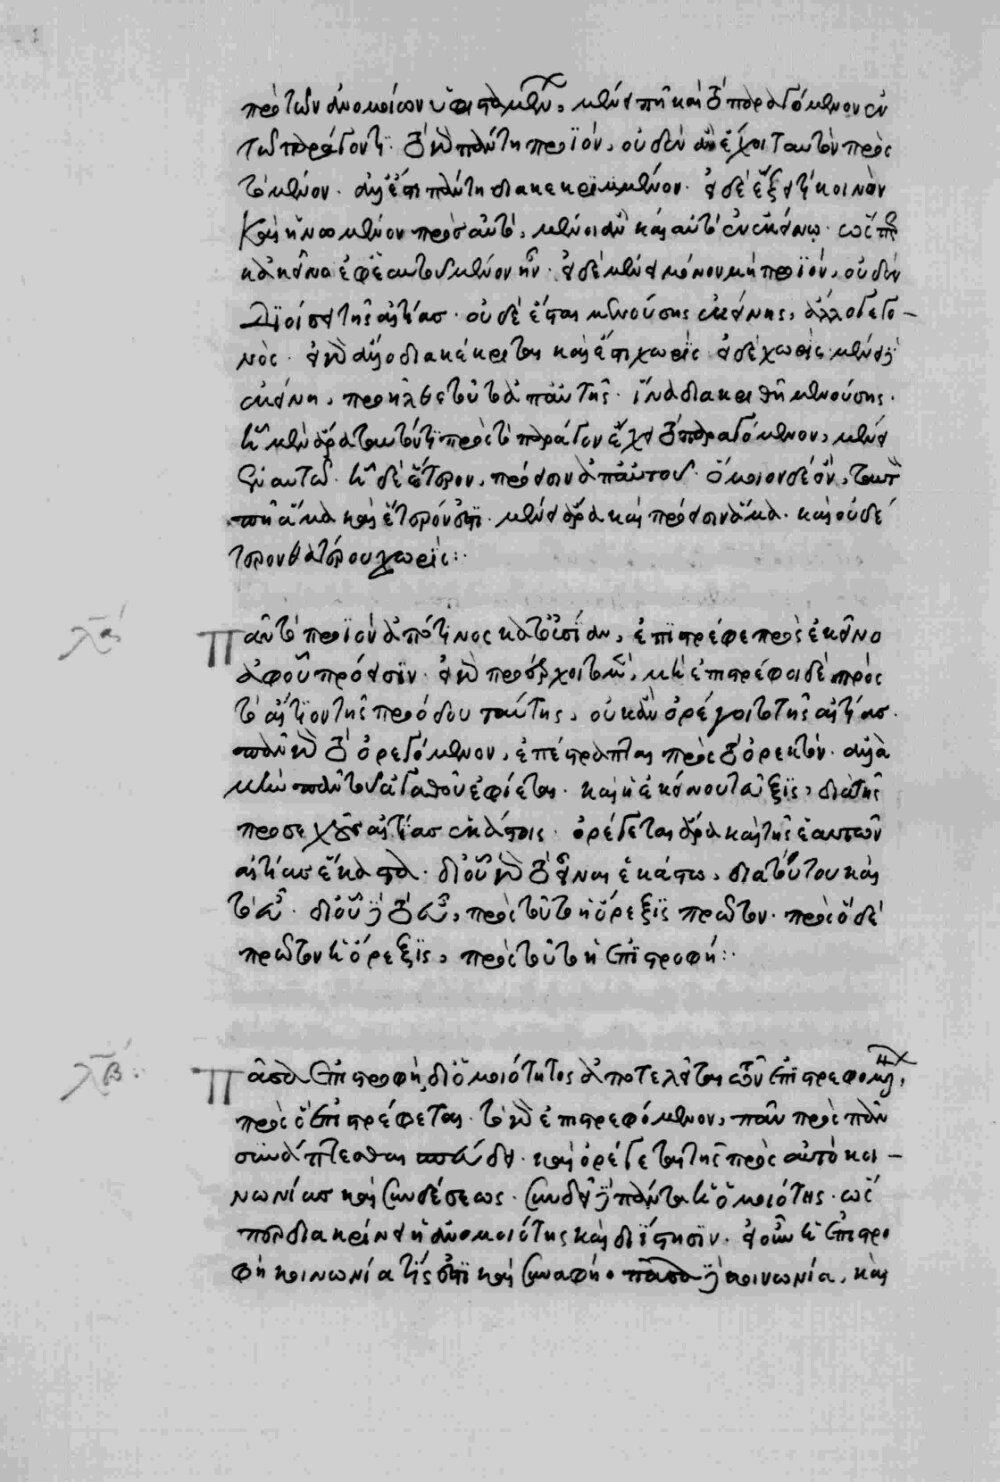 πρὸ τῶν ἀνομοίων ὑφισταμένων, μένει πῃ καὶ τὸ παραγόμενον ἐν
τῷ παράγοντι. τὸ γὰρ πάντῃ προϊόν, οὐδὲν ἂν ἔχοι ταυτὸν πρὸς
τὸ μένον. ἀλλ' ἔστι πάντῃ διακεκριμένον. εἰ δὲ ἕξει τι κοινὸν
καὶ ἡνωμένον πρὸς αὐτό, μένοι ἂν καὶ αὐτὸ ἐν ἐκείνῳ. ὥσπερ
κἀκεῖνο ἐφ' ἑαυτοῦ μένον ἦν. εἰ δὲ μένει μόνον μὴ προϊόν, οὐδὲν
διοίσει τῆς αἰτίας. οὐδὲ ἔσται μενούσης ἐκείνης, ἄλλο γεγο-
νός. εἰ γὰρ ἄλλο διακέκριται καὶ ἔστι χωρίς. εἰ δὲ χωρίς, μένει δὲ
ἐκείνη, προῆλθε τοῦτο ἀπ' αὐτῆς. ἵνα διακριθῇ μενούσης.
ᾗ μὲν ἄρα ταυτόν τι πρὸς τὸ παράγον ἔχει τὸ παραγόμενον, μένει
ἐν αὐτῷ. ᾗ δὲ ἕτερον, πρόεισιν ἀπ' αὐτοῦ. ὅμοιον δὲ ὄν, ταυτόν
πῃ ἅμα καὶ ἕτερόν ἐστι. μένει ἄρα καὶ πρόεισιν ἅμα. καὶ οὐδέ
τερον θατέρου χωρίς:
λα
Πᾶν τὸ προϊὸν ἀπό τινος κατ' οὐσίαν, ἐπιστρέφει πρὸς ἐκεῖνο
ἀφ' οὗ πρόεισιν. εἰ γὰρ προέρχοιτο μέν, μὴ ἐπιστρέφοι δὲ πρὸς
τὸ αἴτιον τῆς προόδου ταύτης, οὐκ ἂν ὀρέγοιτο τῆς αἰτίας.
πᾶν γὰρ τὸ ὀρεγόμενον, ἐπέστραπται πρὸς τὸ ὀρεκτόν. ἀλλὰ
μὴν πᾶν τοῦ ἀγαθοῦ ἐφίεται. καὶ ἡ ἐκείνου τεῦξις, διὰ τῆς
προσεχοῦς αἰτίας ἑκάστοις. ὀρέγεται ἄρα καὶ τῆς ἑαυτῶν
αἰτίας ἕκαστα. δι' οὗ γὰρ τὸ εἶναι ἑκάστῳ, διὰ τούτου καὶ
τὸ εὖ. δι' οὗ δὲ τὸ εὖ, πρὸς τοῦτο ἡ ὄρεξις πρῶτον. πρὸς ὃ δὲ
πρῶτον ἡ ὄρεξις, πρὸς τοῦτο ἡ ἐπιστροφή:
λβ:
Πᾶσα ἐπιστροφὴ δι' ὁμοιότητος ἀποτελεῖται τῶν ἐπιστρεφομένων,
πρὸς ὃ ἐπιστρέφεται. τὸ γὰρ ἐπιστρεφόμενον, πᾶν πρὸς πᾶν
συνάπτεσθαι σπεύδει. καὶ ὀρέγεται τῆς πρὸς αὐτὸ κοι-
νωνίας καὶ συνδέσεως. συνδεῖ δὲ πάντα ἡ ὁμοιότης. ὥσ
περ διακρίνει ἡ ἀνομοιότης καὶ διίστησιν. εἰ οὖν ἡ ἐπιστρο
φὴ κοινωνία τίς ἐστι καὶ συναφή. πᾶσα δὲ κοινωνία, καὶ